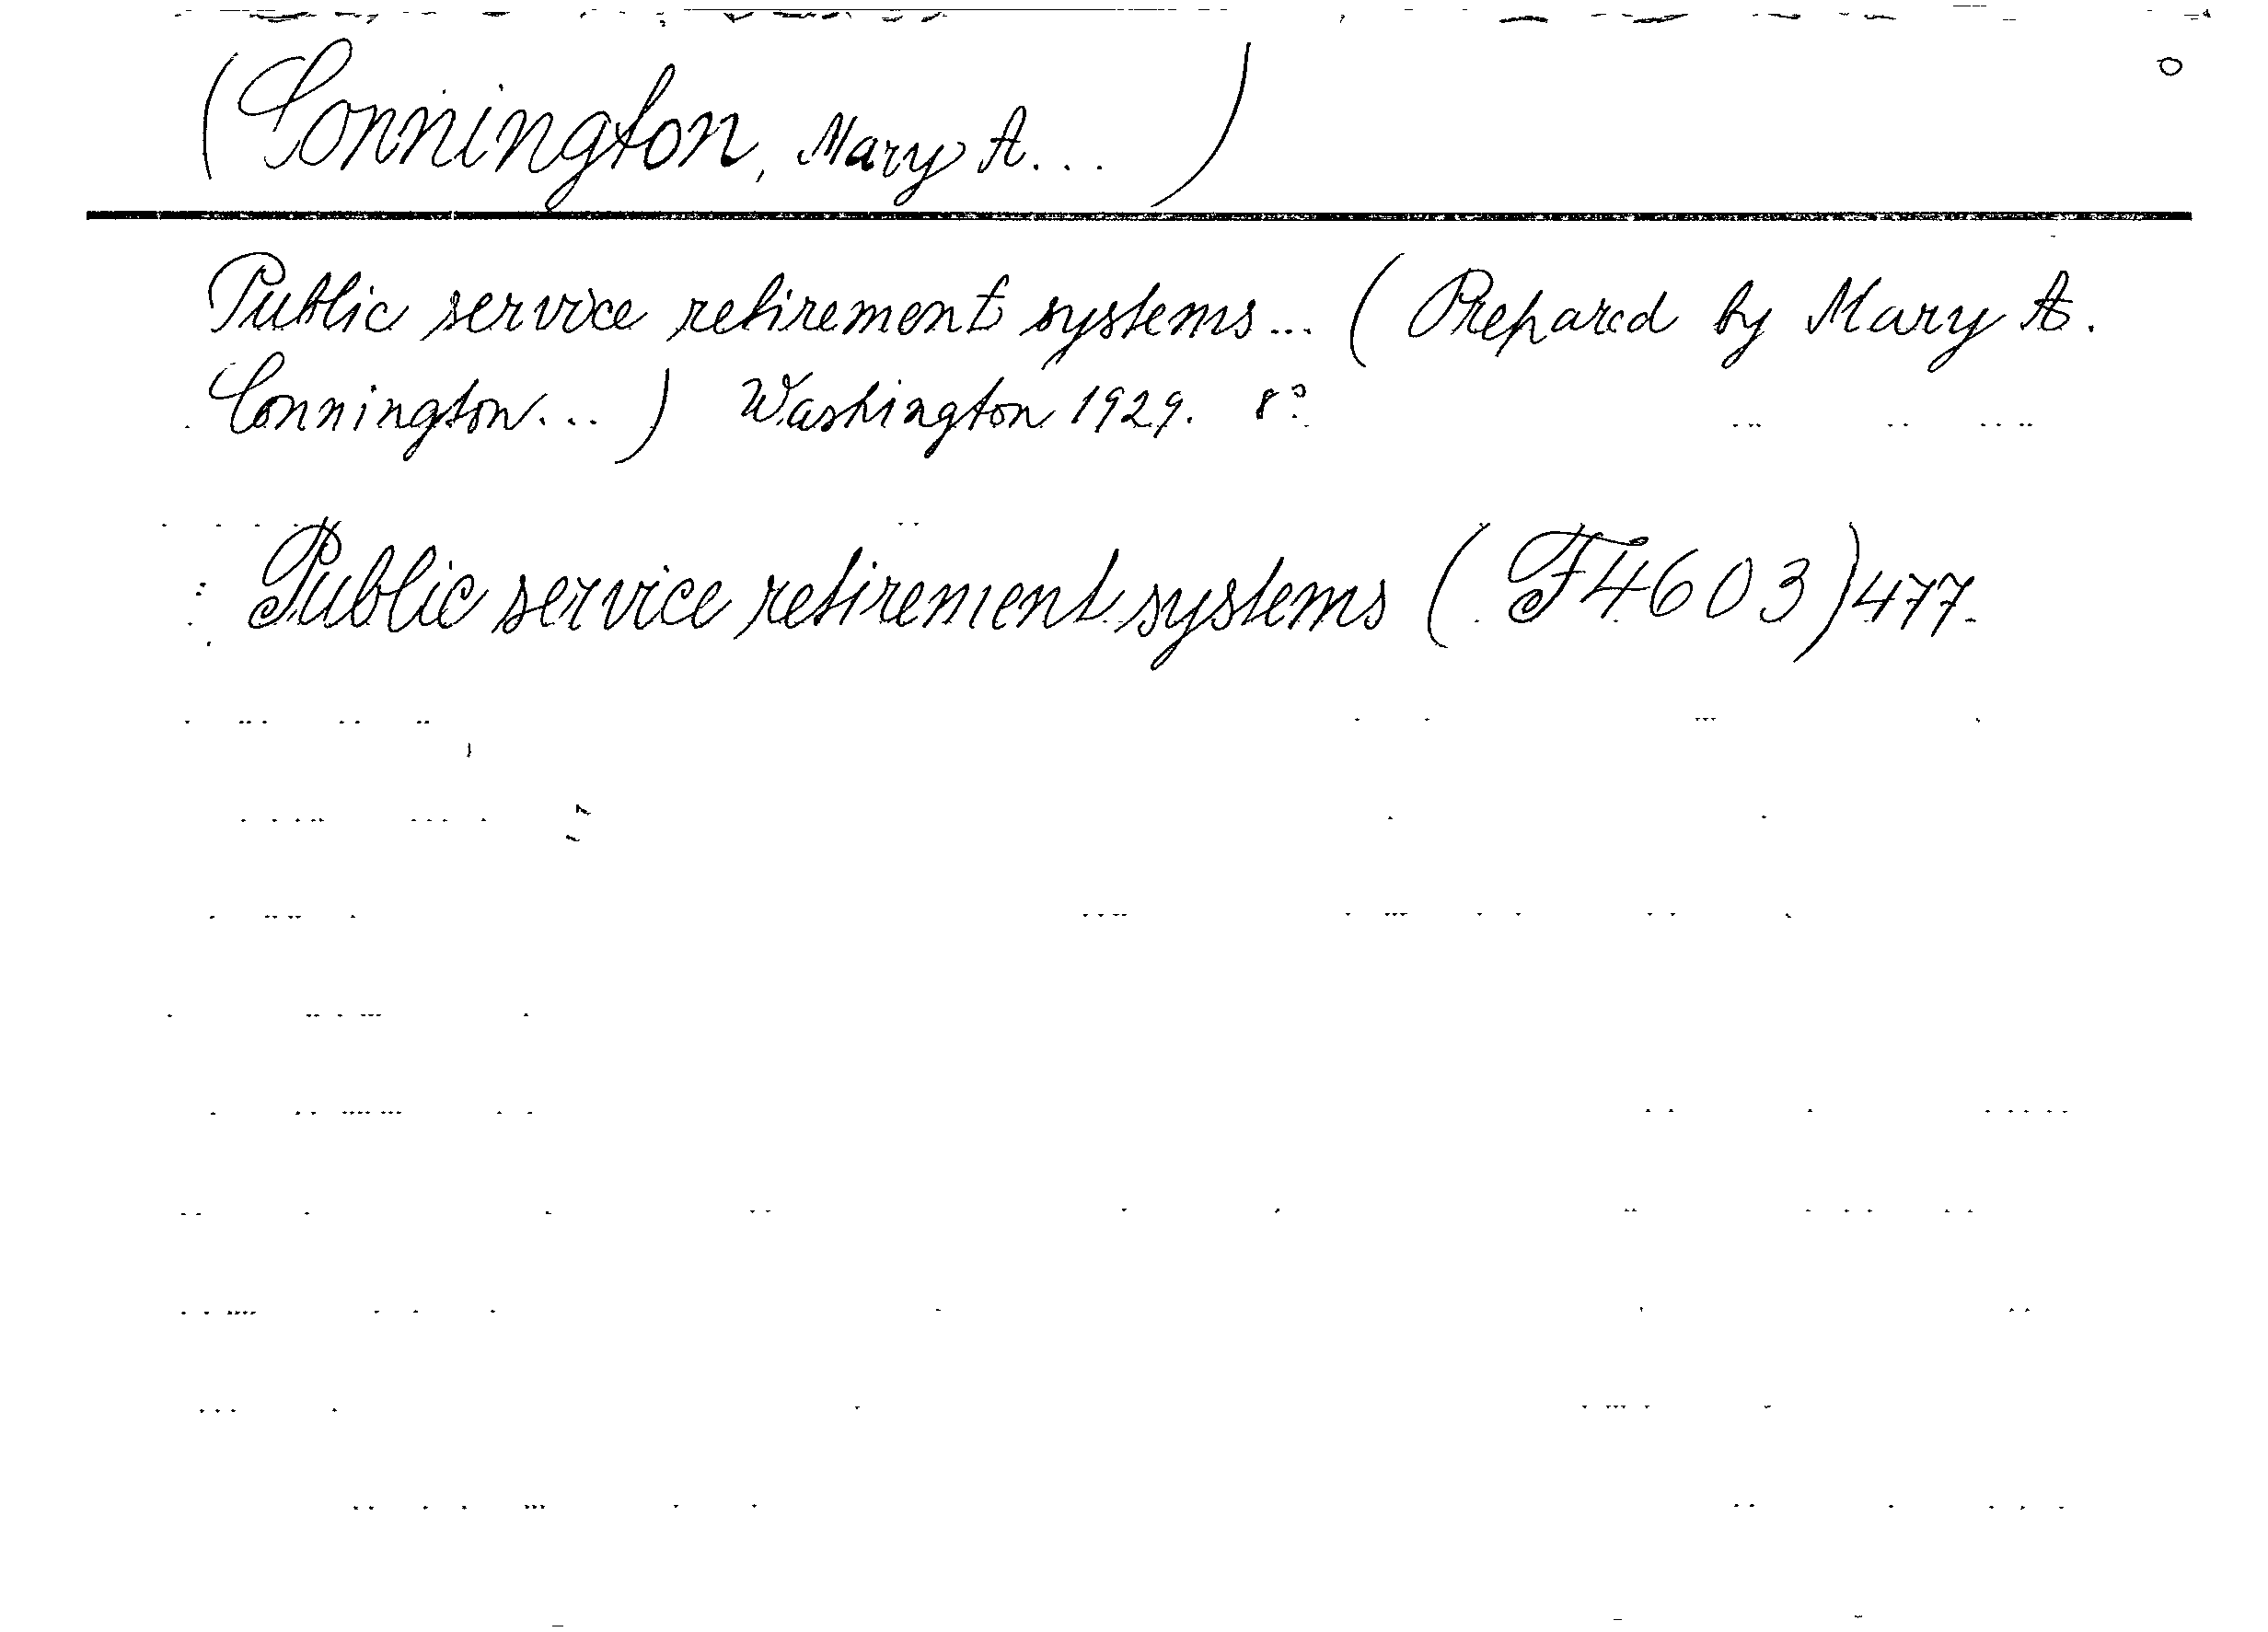 (Connington, Mary A...)
Public service retirement systems... (Prepared by Mary A.
Connington...) Washington 1929. 8°
Public service retirement systems (F4603)477.